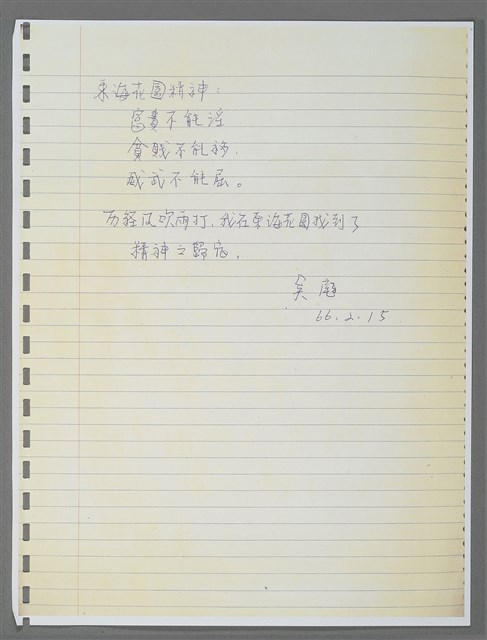 東海花園精神：
富貴不能淫
貧賤不能移.
威武不能屈。
历経风吹雨打，我在東海花园找到了
精神之歸宿.
吳
66.2.15